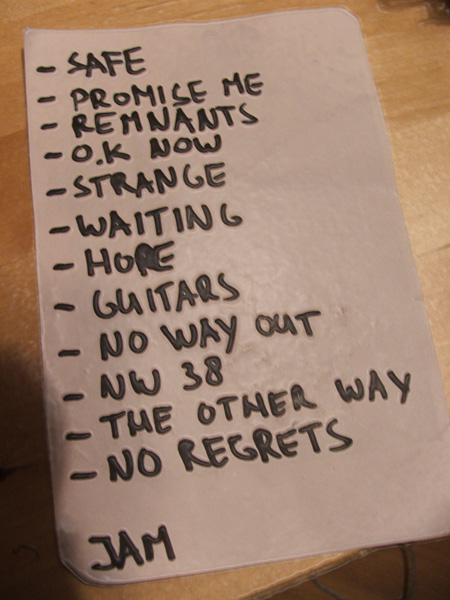 - SAFE
- PROMISE ME
- REMNANTS
- O.K NOW
- STRANGE
- WAITING
- HORE
- GUITARS
- NO WAY OUT
- NW 38
- THE OTHER WAY
- NO REGRETS
JAM